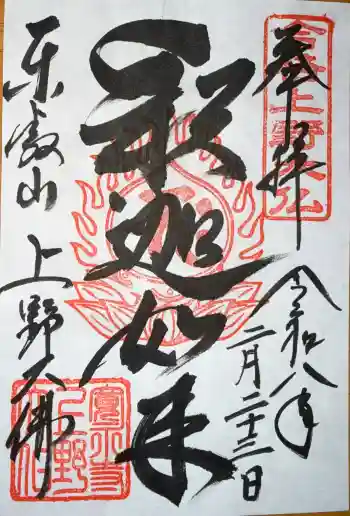 奉拝
令和八年
二月二十三日
釈迦如来
東叡山
上野大佛
寛永寺